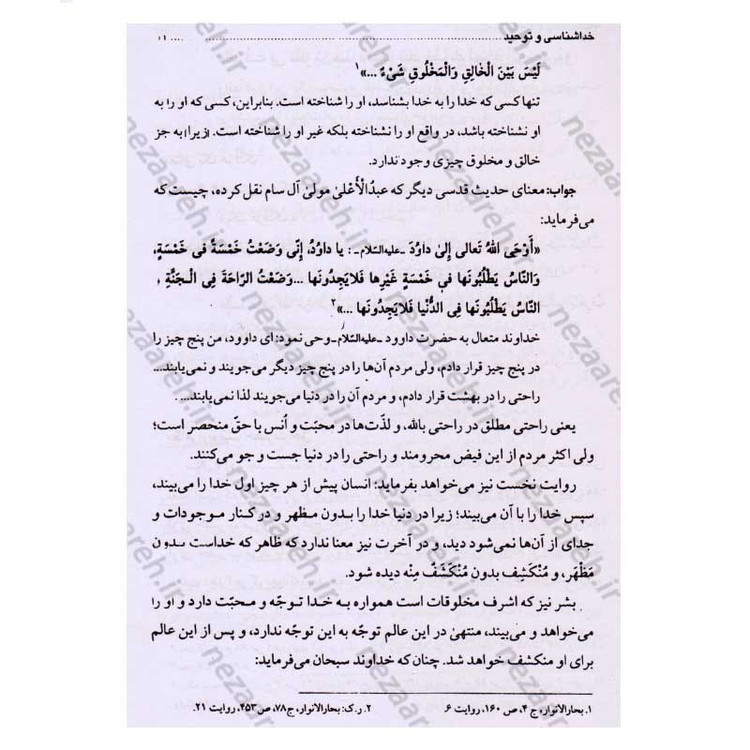 خداشناسی و توحید
لَیْسَ بَیْنَ الْخالِقِ وَالْمَخْلُوقِ شَیْءٌ ...»۱
تنها کسی که خدا را به خدا بشناسد، او را شناخته است. بنابراین، کسی که او را به
او نشناخته باشد، در واقع او را نشناخته بلکه غیر او را شناخته است. (زیرا) به جز
خالق و مخلوق چیزی وجود ندارد.
جواب: معنای حدیث قدسی دیگر که عبدُالْأَعْلیٰ مولیٰ آل سام نقل کرده، چیست که
می‌فرماید:
«أَوْحَی اللهُ تَعالی إِلیٰ داوُدَ ـ علیه‌السّلام ـ : یا داوُدُ، إِنّی وَضَعْتُ خَمْسَةً فی خَمْسَةٍ،
وَالنّاسُ یَطْلُبُونَها فی خَمْسَةٍ غَیْرِها فَلایَجِدُونَها ...وَضَعْتُ الرّاحَةَ فِی الْـجَنَّةِ وَ
النّاسُ یَطْلُبُونَها فِی الدُّنْیا فَلایَجِدُونَها ...»۲
خداوند متعال به حضرت داوود ـ علیه‌السّلام ـ وحی نمود: ای داوود، من پنج چیز را
در پنج چیز قرار دادم، ولی مردم آن‌ها را در پنج چیز دیگر می‌جویند و نمی‌یابند...
راحتی را در بهشت قرار دادم، و مردم آن را در دنیا می‌جویند لذا نمی‌یابند... .
یعنی راحتی مطلق در راحتی بالله، و لذّت‌ها در محبّت و اُنس با حقّ منحصر است؛
ولی اکثر مردم از این فیض محرومند و راحتی را در دنیا جست و جو می‌کنند.
روایت نخست نیز می‌خواهد بفرماید: انسان پیش از هر چیز اول خدا را می‌بیند،
سپس خدا را با آن می‌بیند؛ زیرا در دنیا خدا را بدون مظهر و در کنار مـوجودات و
جدای از آن‌ها نمی‌شود دید، و در آخرت نیز معنا ندارد که ظاهر که خداست بـدون
مَظْهَر، و مُنْکَشِف بدون مُنْکَشَفٌ مِنْه دیده شود.
بشر نیز که اشرف مخلوقات است همواره بـه خـدا تـوجّه و مـحبّت دارد و او را
می‌خواهد و می‌بیند، منتهیٰ در این عالم توجّه به این توجّه ندارد، و پس از این عالم
برای او منکشف خواهد شد. چنان که خداوند سبحان می‌فرماید:
۱. بحارالانوار، ج ۴، ص ۱۶۰، روایت ۶.
۲. ر.ک: بحارالانوار، ج۷۸، ص۴۵۳، روایت ۲۱.
nezaareh.ir